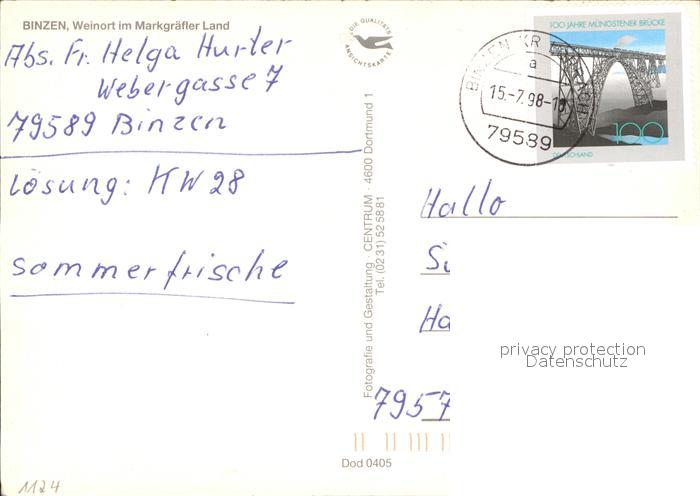 BINZEN, Weinort im Markgräfler Land
Abs. Fr. Helga Hurter
Webergasse 7
79589 Binzen
Lösung: KW 28
Sommerfrische
DIE QUALITÄTS
ANSICHTSKARTE
Fotografie und Gestaltung · CENTRUM · 4600 Dortmund 1
Tel. (0231) 525881
100 JAHRE MÜNGSTENER BRÜCKE
100
DEUTSCHLAND
BINZEN KR
a
15.-7.98-1
79589
Hallo
Ha
7957
privacy protection
Datenschutz
Dod 0405
1124